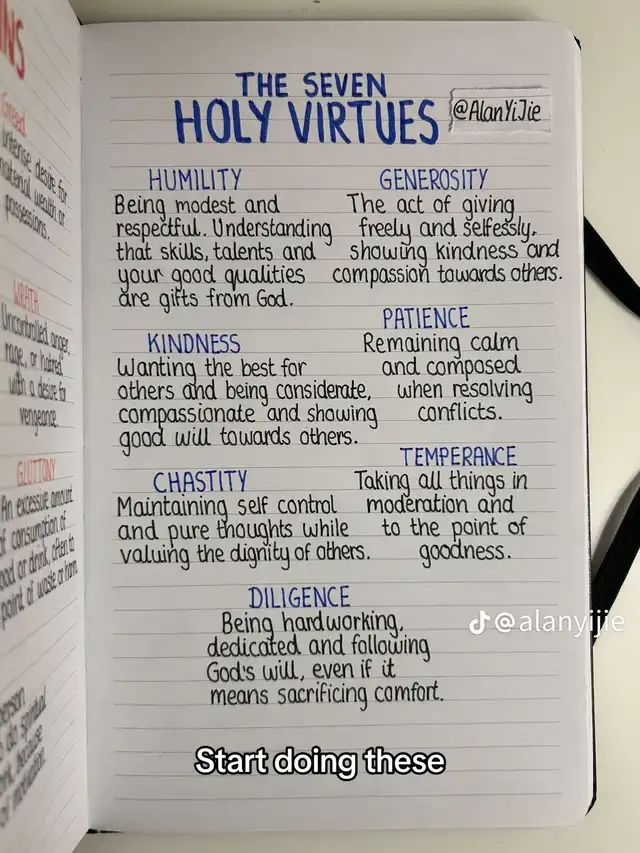 INS
Greed
intense desire for
material wealth or
possessions.
WRATH
Uncontrolled anger,
rage, or hatred
with a desire for
vengeance.
GLUTTONY
An excessive amount
of consumption of
food or drink, often to
point of waste or harm.
person
do spiritual
because
THE SEVEN
HOLY VIRTUES
@AlanYiJie
HUMILITY
Being modest and
respectful. Understanding
that skills, talents and
your good qualities
are gifts from God.
GENEROSITY
The act of giving
freely and selfessly,
showing kindness and
compassion towards others.
KINDNESS
Wanting the best for
others and being considerate,
compassionate and showing
good will towards others.
PATIENCE
Remaining calm
and composed
when resolving
conflicts.
CHASTITY
Maintaining self control
and pure thoughts while
valuing the dignity of others.
TEMPERANCE
Taking all things in
moderation and
to the point of
goodness.
DILIGENCE
Being hardworking,
dedicated and following
God's will, even if it
means sacrificing comfort.
@alanyijie
Start doing these